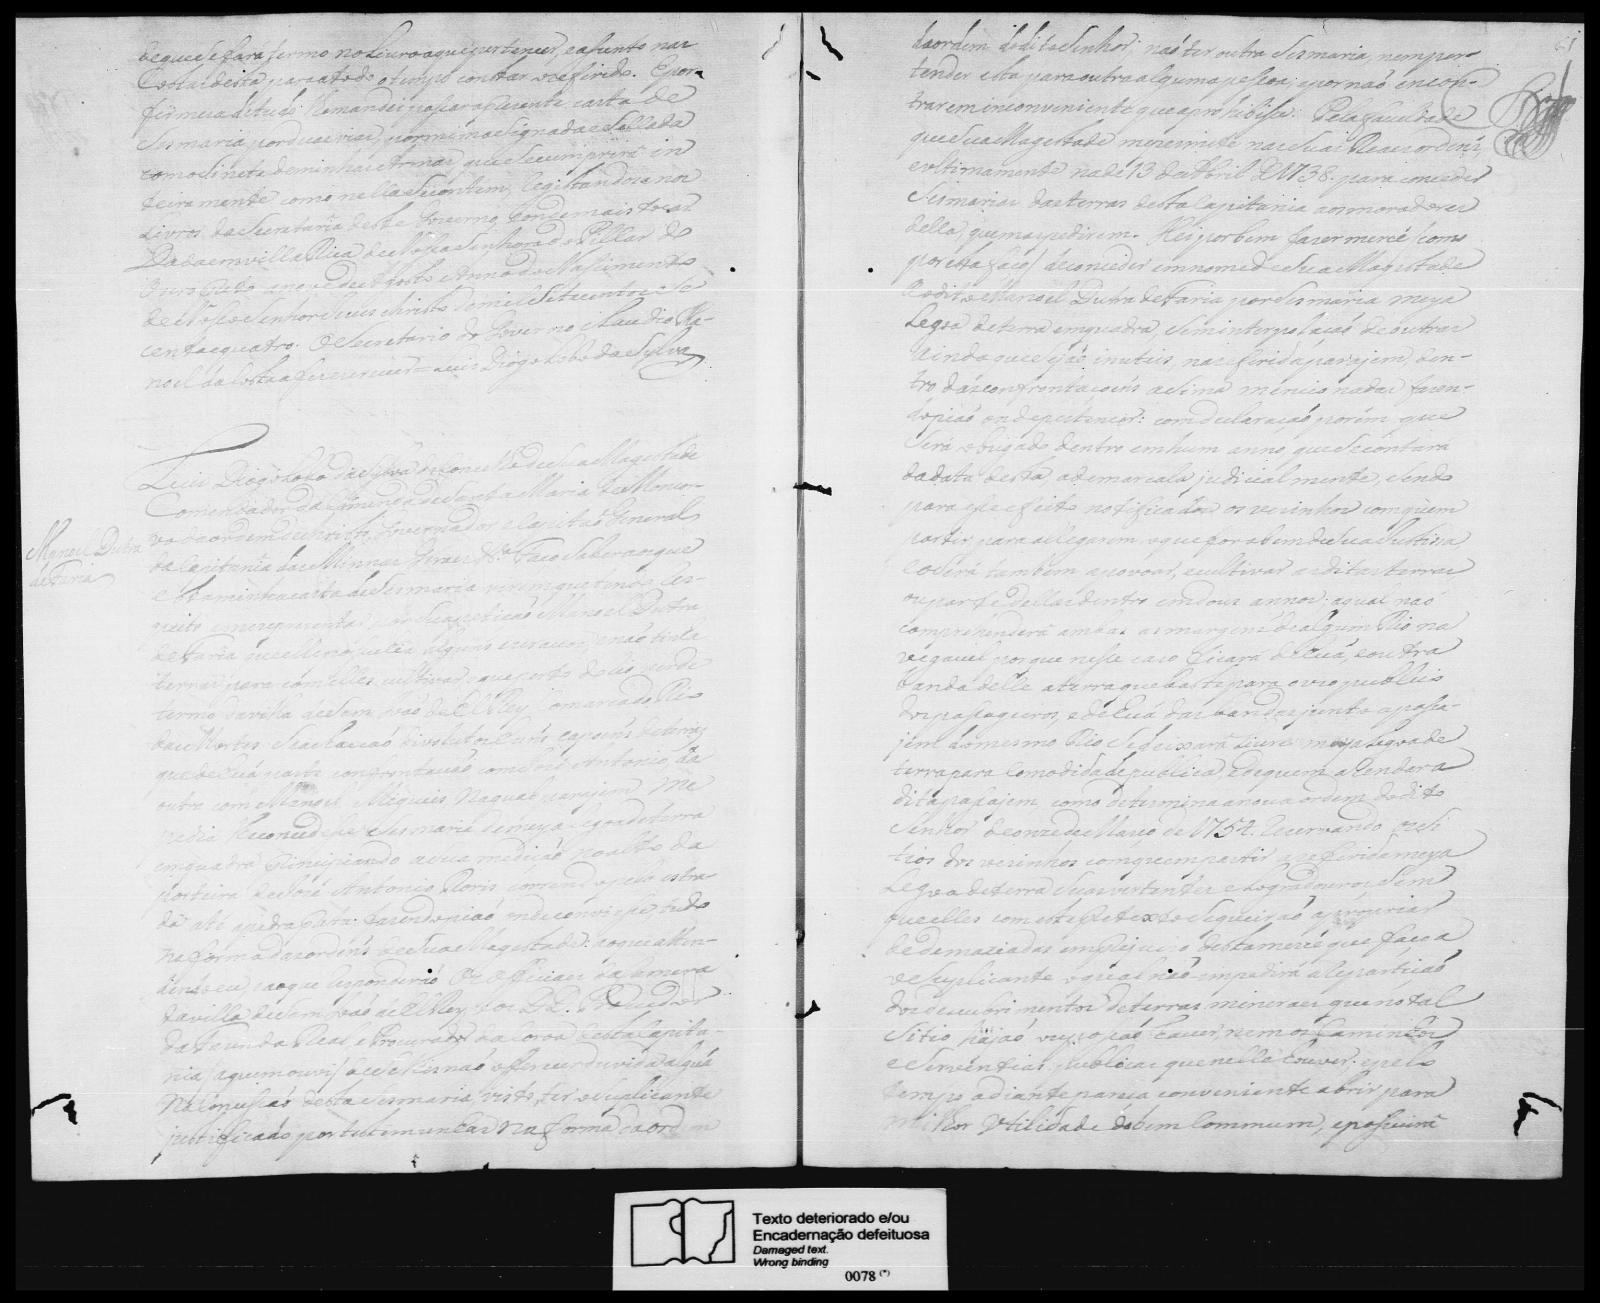 de que se fará termo no Livro a que pertencer, e asento nas
Costas desta para a todo o tempo constar o referido. E por
firmeza de tudo lhe mandei passar a prezente carta de
Sesmaria por duas vias, por mim asignada e Sellada
com o Sinete de minhas Armas que se cumprirá in
teiramente como nella se contem, Registandose nos
Livros da Secretaria deste Governo, e onde mais tocar
Dada em villa Rica de Nossa Senhora do Pillar do
Ouro Preto a nove de Agosto Anno do Nascimento
de Nosso Senhor Jezus Christo de mil Setecentos e Se
centa e quatro. O Secretario do Governo Claudio Ma-
noel da Costa a fez escrever = Luis Diogo Lobo da Sylva
Manoel Dutra
de Faria
Luis Diogo Lobo da Silva do Concelho de Sua Magestade
Comendador da Comenda de Santa Maria de Moncor-
vo da ordem de christo, Governador e Capitaõ General
da Capitania das Minnas Geraes &ª Faço Saber aos que
esta minha carta de Sesmaria virem que tendo res-
peito a me reprezentar por Sua petiçaõ Manoel Dutra
de Faria que elle possuhia alguns escravos, e não tinha
terras para com elles cultivar, e que perto do rio verde
termo da villa de Sam Joaõ de El Rey Comarca do Rio
das Mortes Se achavaõ devolutos huns capoens de terras
que de huá parte confrontavaõ com Jozé Antonio, da
outra com Manoel Miguis Na qual paragem Me
pedia lhe concedese Sesmaria de meya legoa de terra
em quadra Principiando a Sua mediçaõ no alto da
porteira de Jozé Antonio Roris, correndo pelo estra-
da até a pedra preta: fazendo piaõ onde conviesse, tudo
na forma das ordens de Sua Magestade: ao que atten-
dendo eu, e ao que responderaõ Os Officiaes da Camera
da villa de Sam Joaõ de El Rey, e os D.D. Provedor
da Fazenda Real e Procurador da Coroa desta Capita-
nia / a quem ouvi / de Se lhes naõ offerecer duvida alguá
Na concessaõ desta Sesmaria, visto ter o Suplicante
justificado por testemunhas na forma da ordem
61
da ordem do dito Senhor, naõ ter outra Sesmaria, nem per-
tender esta para outra alguma pessoa; e por naõ encon-
trarem inconveniente que a prohibisse: Pela faculdade
que Sua Magestade me permite nas Suas Reaes ordens,
e ultimamente na de 13 de Abril de 1738. para conceder
Sesmarias das terras desta Capitania aos moradores
della, que mas pedirem. Hei por bem fazer mercê / como
por esta faço / de conceder em nome de Sua Magestade
ao dito Manoel Dutra de Faria por Sesmaria meya
Legoa de terra em quadra, Sem interpolaçaõ de outras
ainda que sejaõ inuteis, na referida paragem, den-
tro das confrontaçoens asima mencionadas fazen-
do piaõ onde pertencer: com declaraçaõ porém que
Será obrigado dentro em hum anno que Se contará
da data desta a demarcala judicialmente, Sendo
para esse effeito notificados os vezinhos com quem
partir para allegarem o que for a bem de Sua Justissa
e o será tambem a povoar, e cultivar as ditas terras
ou parte dellas dentro em dous annos; a qual naõ
comprehenderá ambas as margens de algum Rio na
vegavel porque neste caso ficará de huá, e outra
banda delle a terra que baste para o uzo publico
dos passageiros, e de huá das bandas junto a passa-
jem do mesmo Rio Se deixará Livre meya legoa de
terra para Comodidade publica, e de quem arrendar a
dita passajem, como determina a nova ordem do dito
Senhor de onze de Março de 1754. Rezervando os Si
tios dos vezinhos com quem partir a referida meya
Legoa de terra, Suas vertentes, e Logradouros, Sem
que elles com este pretexto Se queiraõ apropriar
de demaziadas em prejuizo desta mercê que faço ao
Suplicante, o qual naõ impedirá a repartiçaõ
dos descubrimentos de terras mineraes que no tal
Sitio hajaõ ou possaõ haver, nem os Caminhos
e Serventias publicas que nelle houver, e pelo
tempo adiante pareça conveniente abrir para
milhor Utilidade do bem Commum, e possuirá
Texto deteriorado e/ou
Encadernação defeituosa
Damaged text.
Wrong binding
0078 (*)